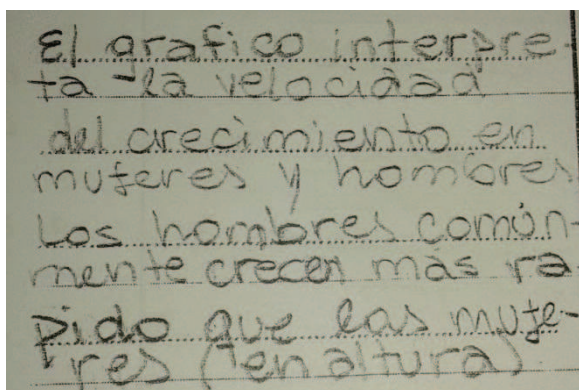 El grafico interpre-
ta la velocidad
del crecimiento en
mujeres y hombres
Los hombres común-
mente crecen más ra
pido que las muje-
res (en altura)